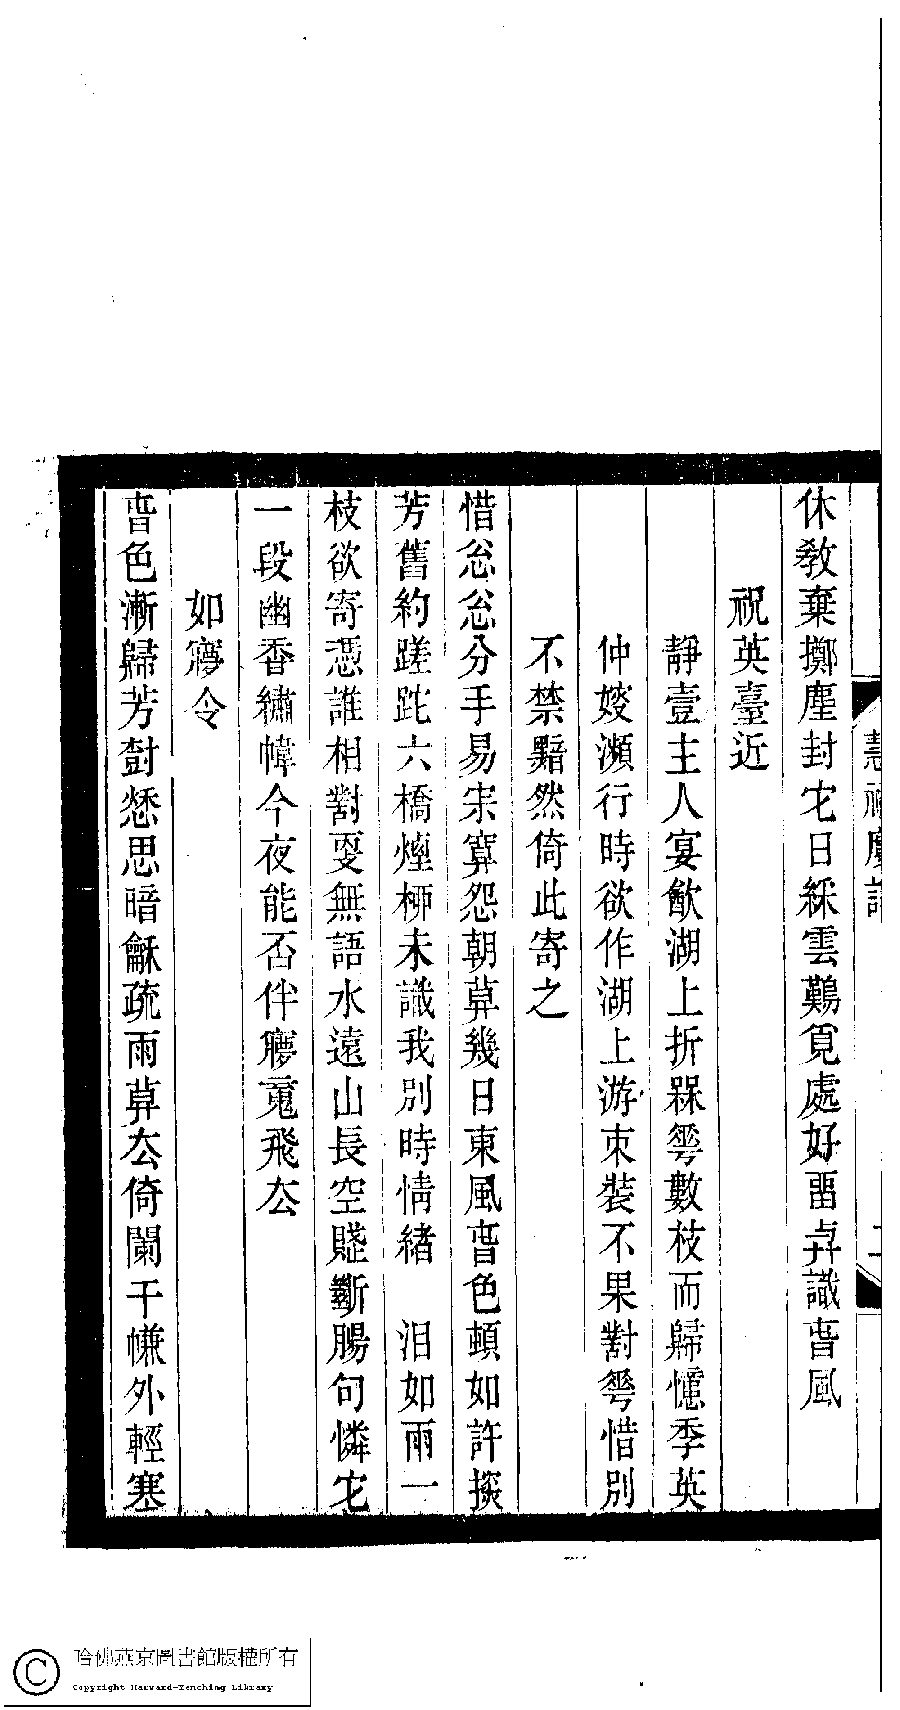 休教棄擲塵封它日綵雲難覓處好畱弆識旾風
祝英臺近
靜壹主人宴歈湖上折槑雩數枝而歸憶季英
仲嫂瀕行時欲作湖上游束裝不果對雩惜別
不禁黯然倚此寄之
惜忩忩分手易宋寞怨朝莫幾日東風旾色頓如許撥
芳舊約蹉跎六橋煙桺未識我別時情緒　泪如雨一
枝欲寄憑誰相對更無語水遠山長空賸斷腸句憐它
一段幽香繡幃今夜能否伴㝱䰟飛厺
如㝱令
旾色漸歸芳尌愁思暗龢疏雨莫厺倚闌干㡘外輕寒
哈佛燕京圖書館版權所有
Copyright Harvard-Yenching Library